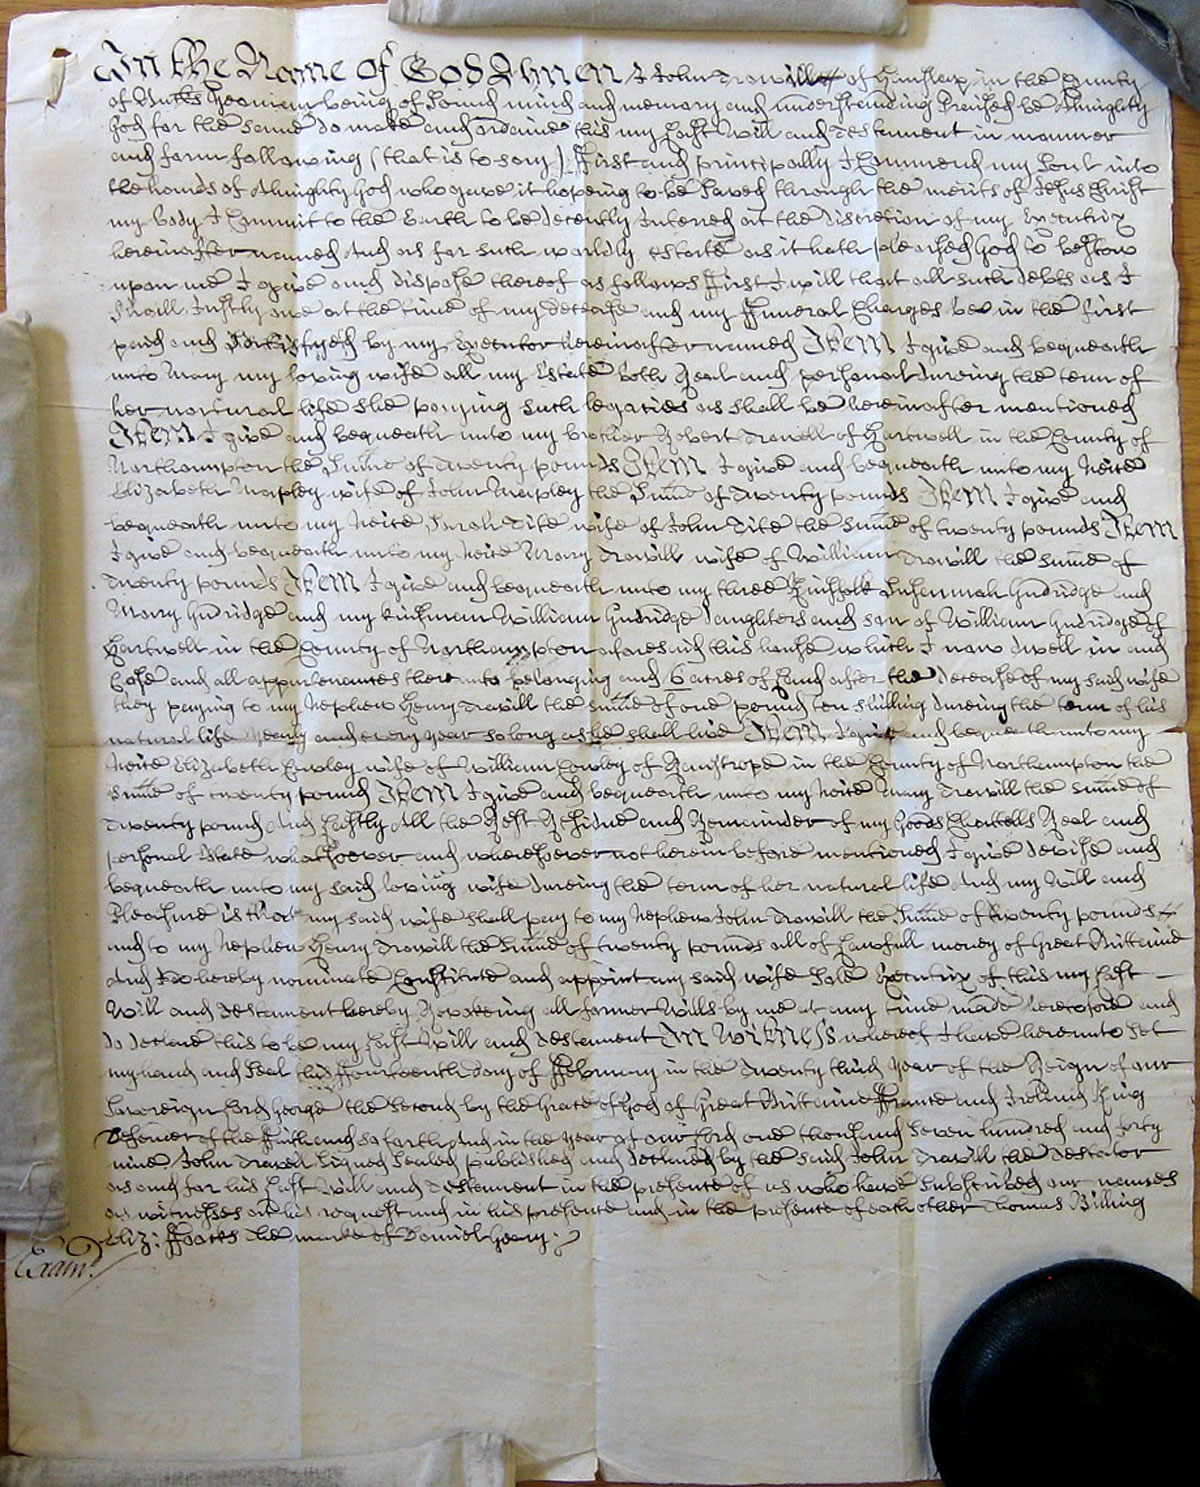 In the Name of God Amen I John Trowill of Hanslap in the County
of Bucks Yeoman being of Sound mind and memory and understanding Praised be Almighty
God for the same do make and ordaine this my Last Will and Testament in manner
and form following (that is to say) First and principally I Commend my Soul into
the hands of Almighty God who gave it hopeing to be Saved through the merits of Jesus Christ
my body I Commit to the Earth to be decently Intered at the discretion of my Executrix
hereinafter named And as for such worldly estate as it hath pleased God to bestow
upon me I give and dispose thereof as follows First I will that all such debts as I
Shall Justly owe at the time of my decease and my Funeral Charges be in the first
paid and Sattisfyed by my Executor hereinafter named Item I give and bequeath
unto Mary my loving wife all my Estate both Real and personal dureing the term of
her natural life she paying such legacies as shall be hereinafter mentioned
Item I give and bequeath unto my brother Robert Trowell of Hartwell in the County of
Northampton the Sume of Twenty pounds Item I give and bequeath unto my Neice
Elizabeth Mapley wife of John Mapley the Sume of Twenty pounds Item I give and
bequeath unto my Neice Sarah Tite wife of John Tite the Sume of twenty pounds Item
I give and bequeath unto my Neice Mary Trowill wife of William Trowill the sume of
Twenty pounds Item I give and bequeath unto my three Kinsfolk Susannah Gudridge and
Mary Gudridge and my kinsman William Gudridge daughters and son of William Gudridge of
Hartwell in the County of Northampton aforesaid this house which I now dwell in and
Close and all appurtenances there unto belonging and 6 acres of Land after the decease of my said wife
they paying to my Nephew Henry Trowill the sume of one pound ten shilling dureing the term of his
natural life yearly and every year so long as he shall live Item I give and bequeath unto my
Neice Elizabeth Cowley wife of William Cowley of in the County of Northampton the
Sume of twenty pound Item I give and bequeath unto my Neice Mary Trowill the sume of
Twenty pound And Lastly All the Rest Residue and Remainder of my Goods Chattells Real and
personal Estate whatsoever and wheresoever not herein before mentioned I give devise and
bequeath unto my said loving wife dureing the term of her natural life And my Will and
Pleasure is that my said wife shall pay to my Nephew John Trowill the Sume of twenty pounds
and to my Nephew Henry Trowill the Sume of twenty pounds all of Lawfull money of Great Brittaine
And I do hereby nominate Constitute and appoint my said wife Sole Executrix of this my Last
Will and Testament hereby Revokeing all former Wills by me at any time made heretofore and
do declare this to be my Last Will and Testament In Witness whereof I have hereunto Set
my hand and Seal this Fourteenth day of February in the Twenty third year of the Reign of our
Sovereign Lord George the Second by the Grace of God of Great Brittaine France and Ireland King
Defender of the Faith and so forth And in the year of our Lord one thousand Seven hundred and forty
nine John Trowell Signed Sealed published and declared by the said John Trowill the Testator
as and for his Last Will and Testament in the presence of us who have Subscribed our names
as witnesses at his request and in his presence and in the presence of each other Thomas Billing
Eliz: Foocks The marke of Daniel Geary
Exam.d